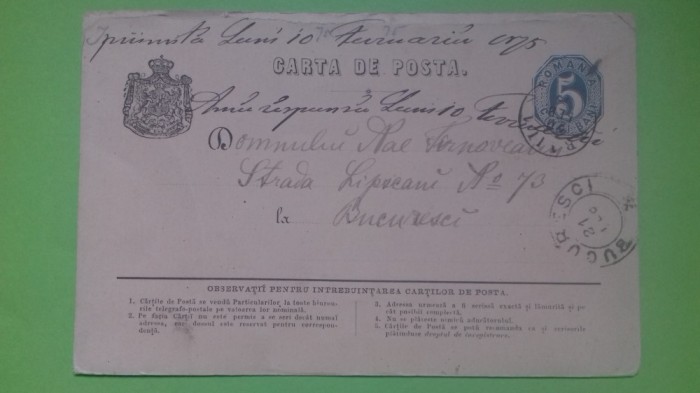 Luni 10 Februariu 1875
CARTA DE POSTA.
ROMANIA
5
CINCI BANI
Luni 10
Domnului Nae
Strada Lipscani No 73
la
Bucuresci
BUCURESCI
OBSERVAȚII PENTRU INTREBUINTAREA CARTILOR DE POSTA.
1. Cărțile de Postă se vendă Particularilor la tote birourile telegrafo-postale pe valorea lor nominală.
2. Pe fația Cărții nu este permis a se scri decât numai adresa, dosul este reservat pentru correspondență.
3. Adresa urmează a fi scrisă exactă și lămurită și pe cât posibil complectă.
4. Nu se plătesce nimică aducătorului.
5. Cărțile de Postă se potă recomanda ca și scrisorile plătinduse dreptul de